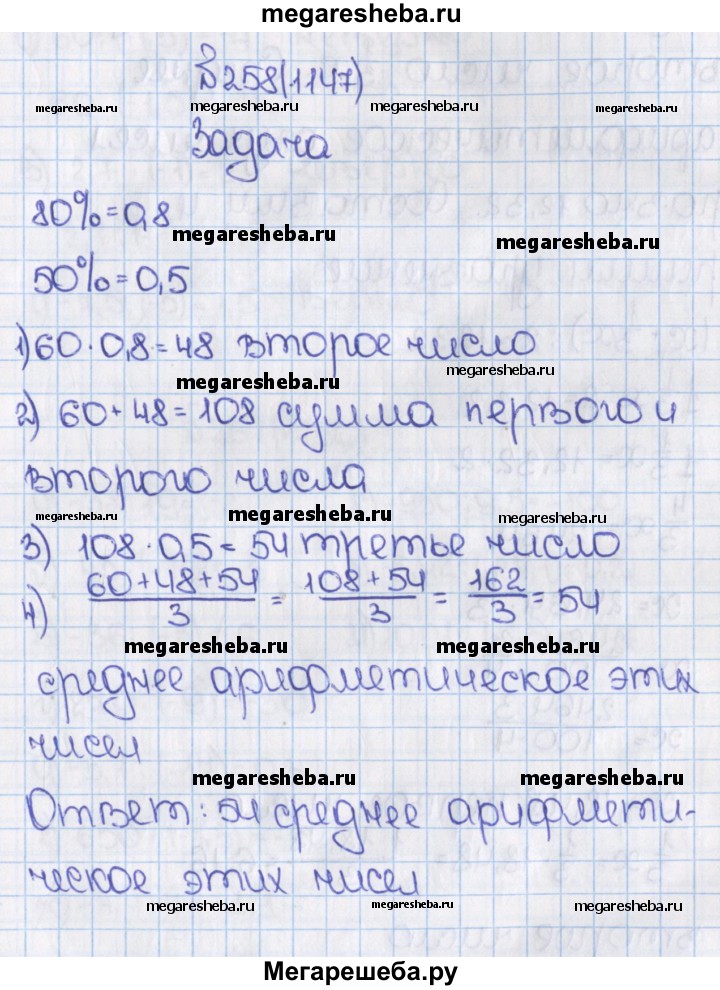 megaresheba.ru
№258(1147)
megaresheba.ru megaresheba.ru megaresheba.ru megaresheba.ru
Задача
80%=0,8
megaresheba.ru megaresheba.ru
50%=0,5
1) 60·0,8=48 второе число
megaresheba.ru megaresheba.ru
2) 60+48=108 сумма первого и
второго числа
megaresheba.ru megaresheba.ru megaresheba.ru
3) 108·0,5=54 третье число
4) (60+48+54)/3 = (108+54)/3 = 162/3 = 54
megaresheba.ru megaresheba.ru
среднее арифметическое этих
чисел
megaresheba.ru megaresheba.ru
Ответ: 54 среднее арифмети-
ческое этих чисел
megaresheba.ru megaresheba.ru megaresheba.ru
Мегарешеба.ру